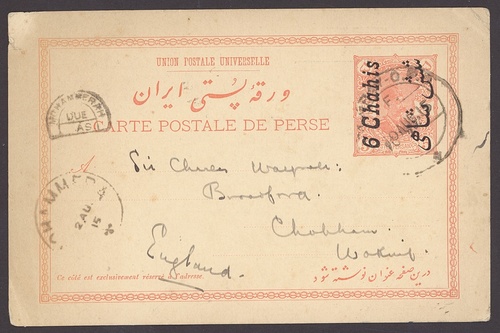 UNION POSTALE UNIVERSELLE
ورقهٔ پستی ایران
CARTE POSTALE DE PERSE
6 Chahis
MOHAMMERAH
DUE
A
Sir Charles
Broadford.
Chobham
Woking
England.
Ce côté est exclusivement réservé à l'adresse.
درین صفحه عنوان نوشته شود